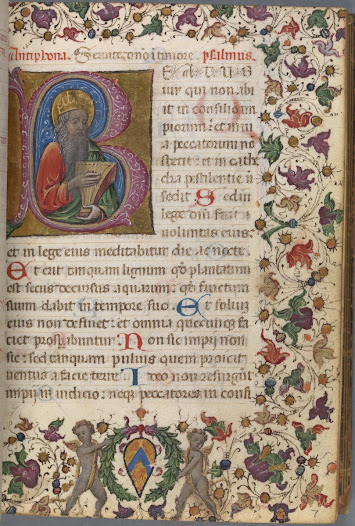 Antiphona. Seruite dno i timore. psalmus.
B EATUS
uir qui non abi
it in consilio im
piorum: et in ui
a peccatorum no
stetit: et in cathe
dra pestilentie n
sedit. Sed in
lege dni fuit
uoluntas eius:
et in lege eius meditabitur die ac nocte.
Et erit tanquam lignum qd plantatum
est secus decursus aquarum: qd fructum
suum dabit in tempore suo. Et foliu
eius non defluet: et omnia quecunq fa
ciet prosperabuntur. Non sic impij non
sic: sed tanquam puluis quem proicit
uentus a facie terre. Ideo non resurgut
impij in iudicio: neq peccatores in consi